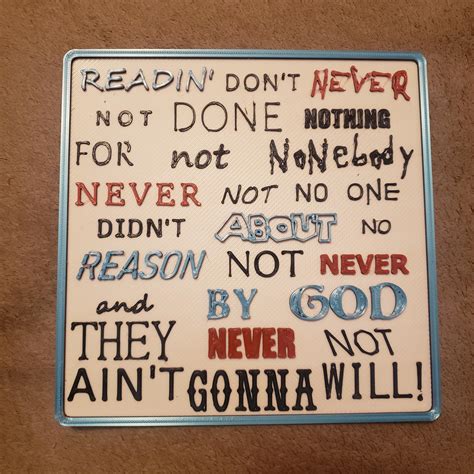 READIN' DON'T NEVER
NOT DONE NOTHING
FOR not NoNebody
NEVER NOT NO ONE
DIDN'T ABOUT NO
REASON NOT NEVER
and BY GOD
THEY NEVER NOT
AIN'T GONNA WILL!